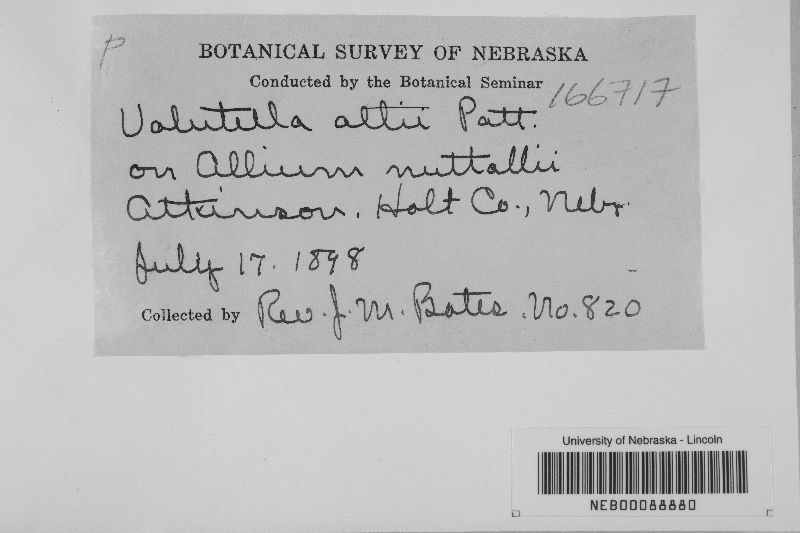 P
BOTANICAL SURVEY OF NEBRASKA
Conducted by the Botanical Seminar
166717
Volutella allii Patt.
on Allium nuttallii
Atkinson, Holt Co., Nebr.
July 17. 1898
Collected by Rev. J. M. Bates. No. 820
University of Nebraska - Lincoln
NEB00088880